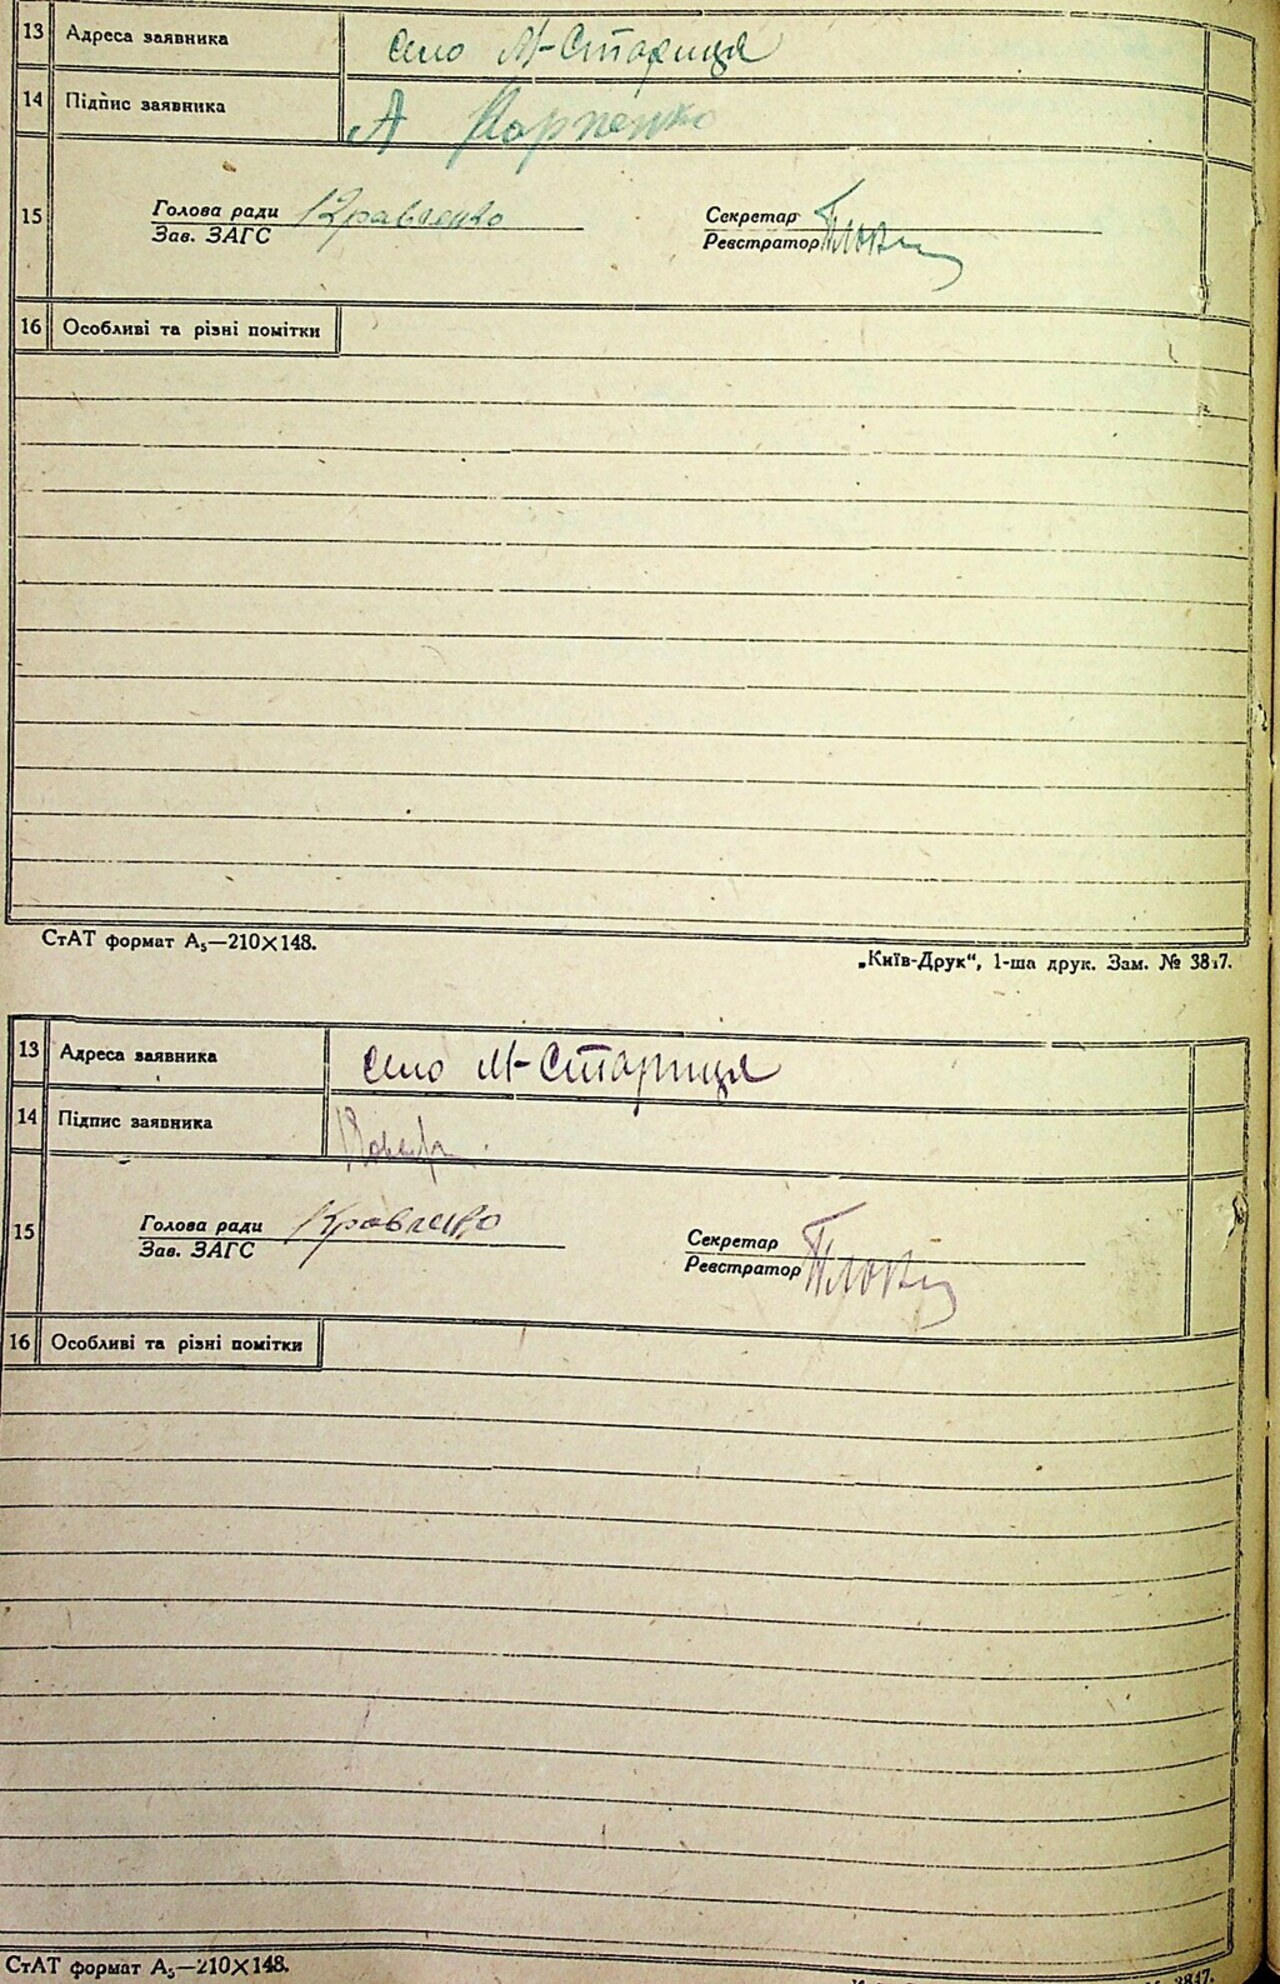 13 Адреса заявника село М-Стариця
14 Підпис заявника А Карпенко
15 Голова ради Кравченко Секретар
Зав. ЗАГС Реєстратор
16 Особливі та різні помітки
СтАТ формат А₅—210×148.
„Київ-Друк“, 1-ша друк. Зам. № 3817.
13 Адреса заявника село М-Стариця
14 Підпис заявника
15 Голова ради Кравченко Секретар
Зав. ЗАГС Реєстратор
16 Особливі та різні помітки
СтАТ формат А₅—210×148.
3817.